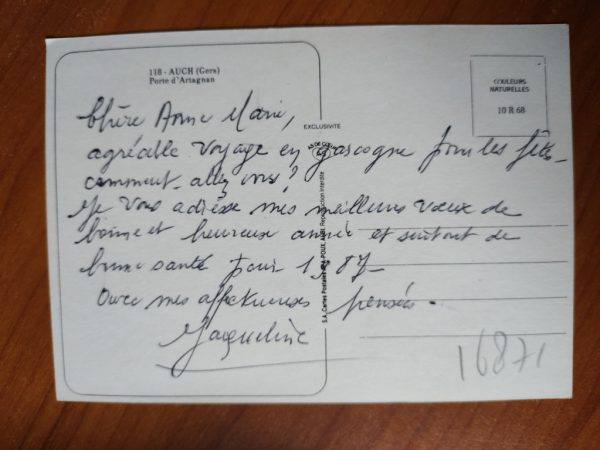 118 - AUCH (Gers)
Porte d'Artagnan
COULEURS
NATURELLES
10 R 68
EXCLUSIVITÉ
Chère Anne Marie,
agréable voyage en gascogne pour les fêtes
comment allez vous?
Je vous adresse mes meilleurs vœux de
bonne et heureux année et surtout de
bonne santé pour 1987
Avec mes affectueuses pensées.
Jacqueline
S.A. Cartes Postales Reproduction Interdite
16871